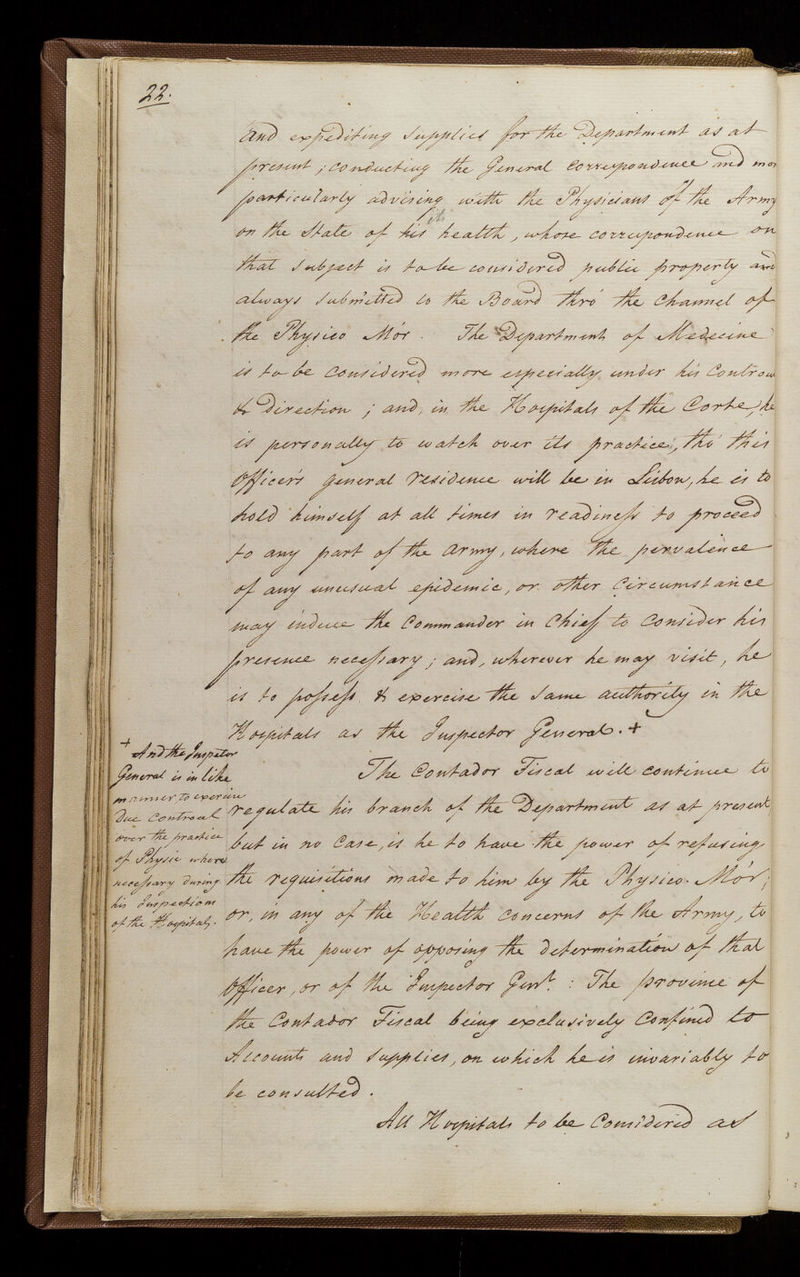 22.
and expediting supplies for the Department as at
present; conducting the General correspondence and mor
particularly advising with the Physicians of the Army
its
on the State of his health, whose correspondence on
that subject is to be considered public property and
always submitted to the Board thro' the Channel of
the Physico Mór. The Department of Medecine
is to be considered more especially under his Controul
& Direction; and, in the Hospitals of the Corte, he
is personally to watch over its practice, tho' this
Officer's general residence will be in Lisbon, he is to
hold himself at all times in readiness to proceed
to any part of the army, where the pervalence
of any unusual epidemic, or other Circumstance
may induce the Commander in Chief to Consider his
presence necessary; and, wherever he may visit, he
is to possess & exercise the same authority in the
Hospitals as the Inspector General. +
+ And the Inspetor
General is in like
manner to exercise
Due Controul
over the practice
of Physic where
necessary during
his Inspections
of the Hospitals.
The Contador Fiscal will continue to
regulate his branch of the Department as at present
but in no Case, is he to have the power of refusing
the requisitions made to him by the Physico-Mór;
or, in any of the Health Concerns of the Army, to
have the power of opposing the determination of that
Officer, or of the Inspector Genl.: The province of
the Contador Fiscal being exclusively Confined to
Accounts and supplies, on which he is invariably to
be consulted.
All Hospitals to be Considered as